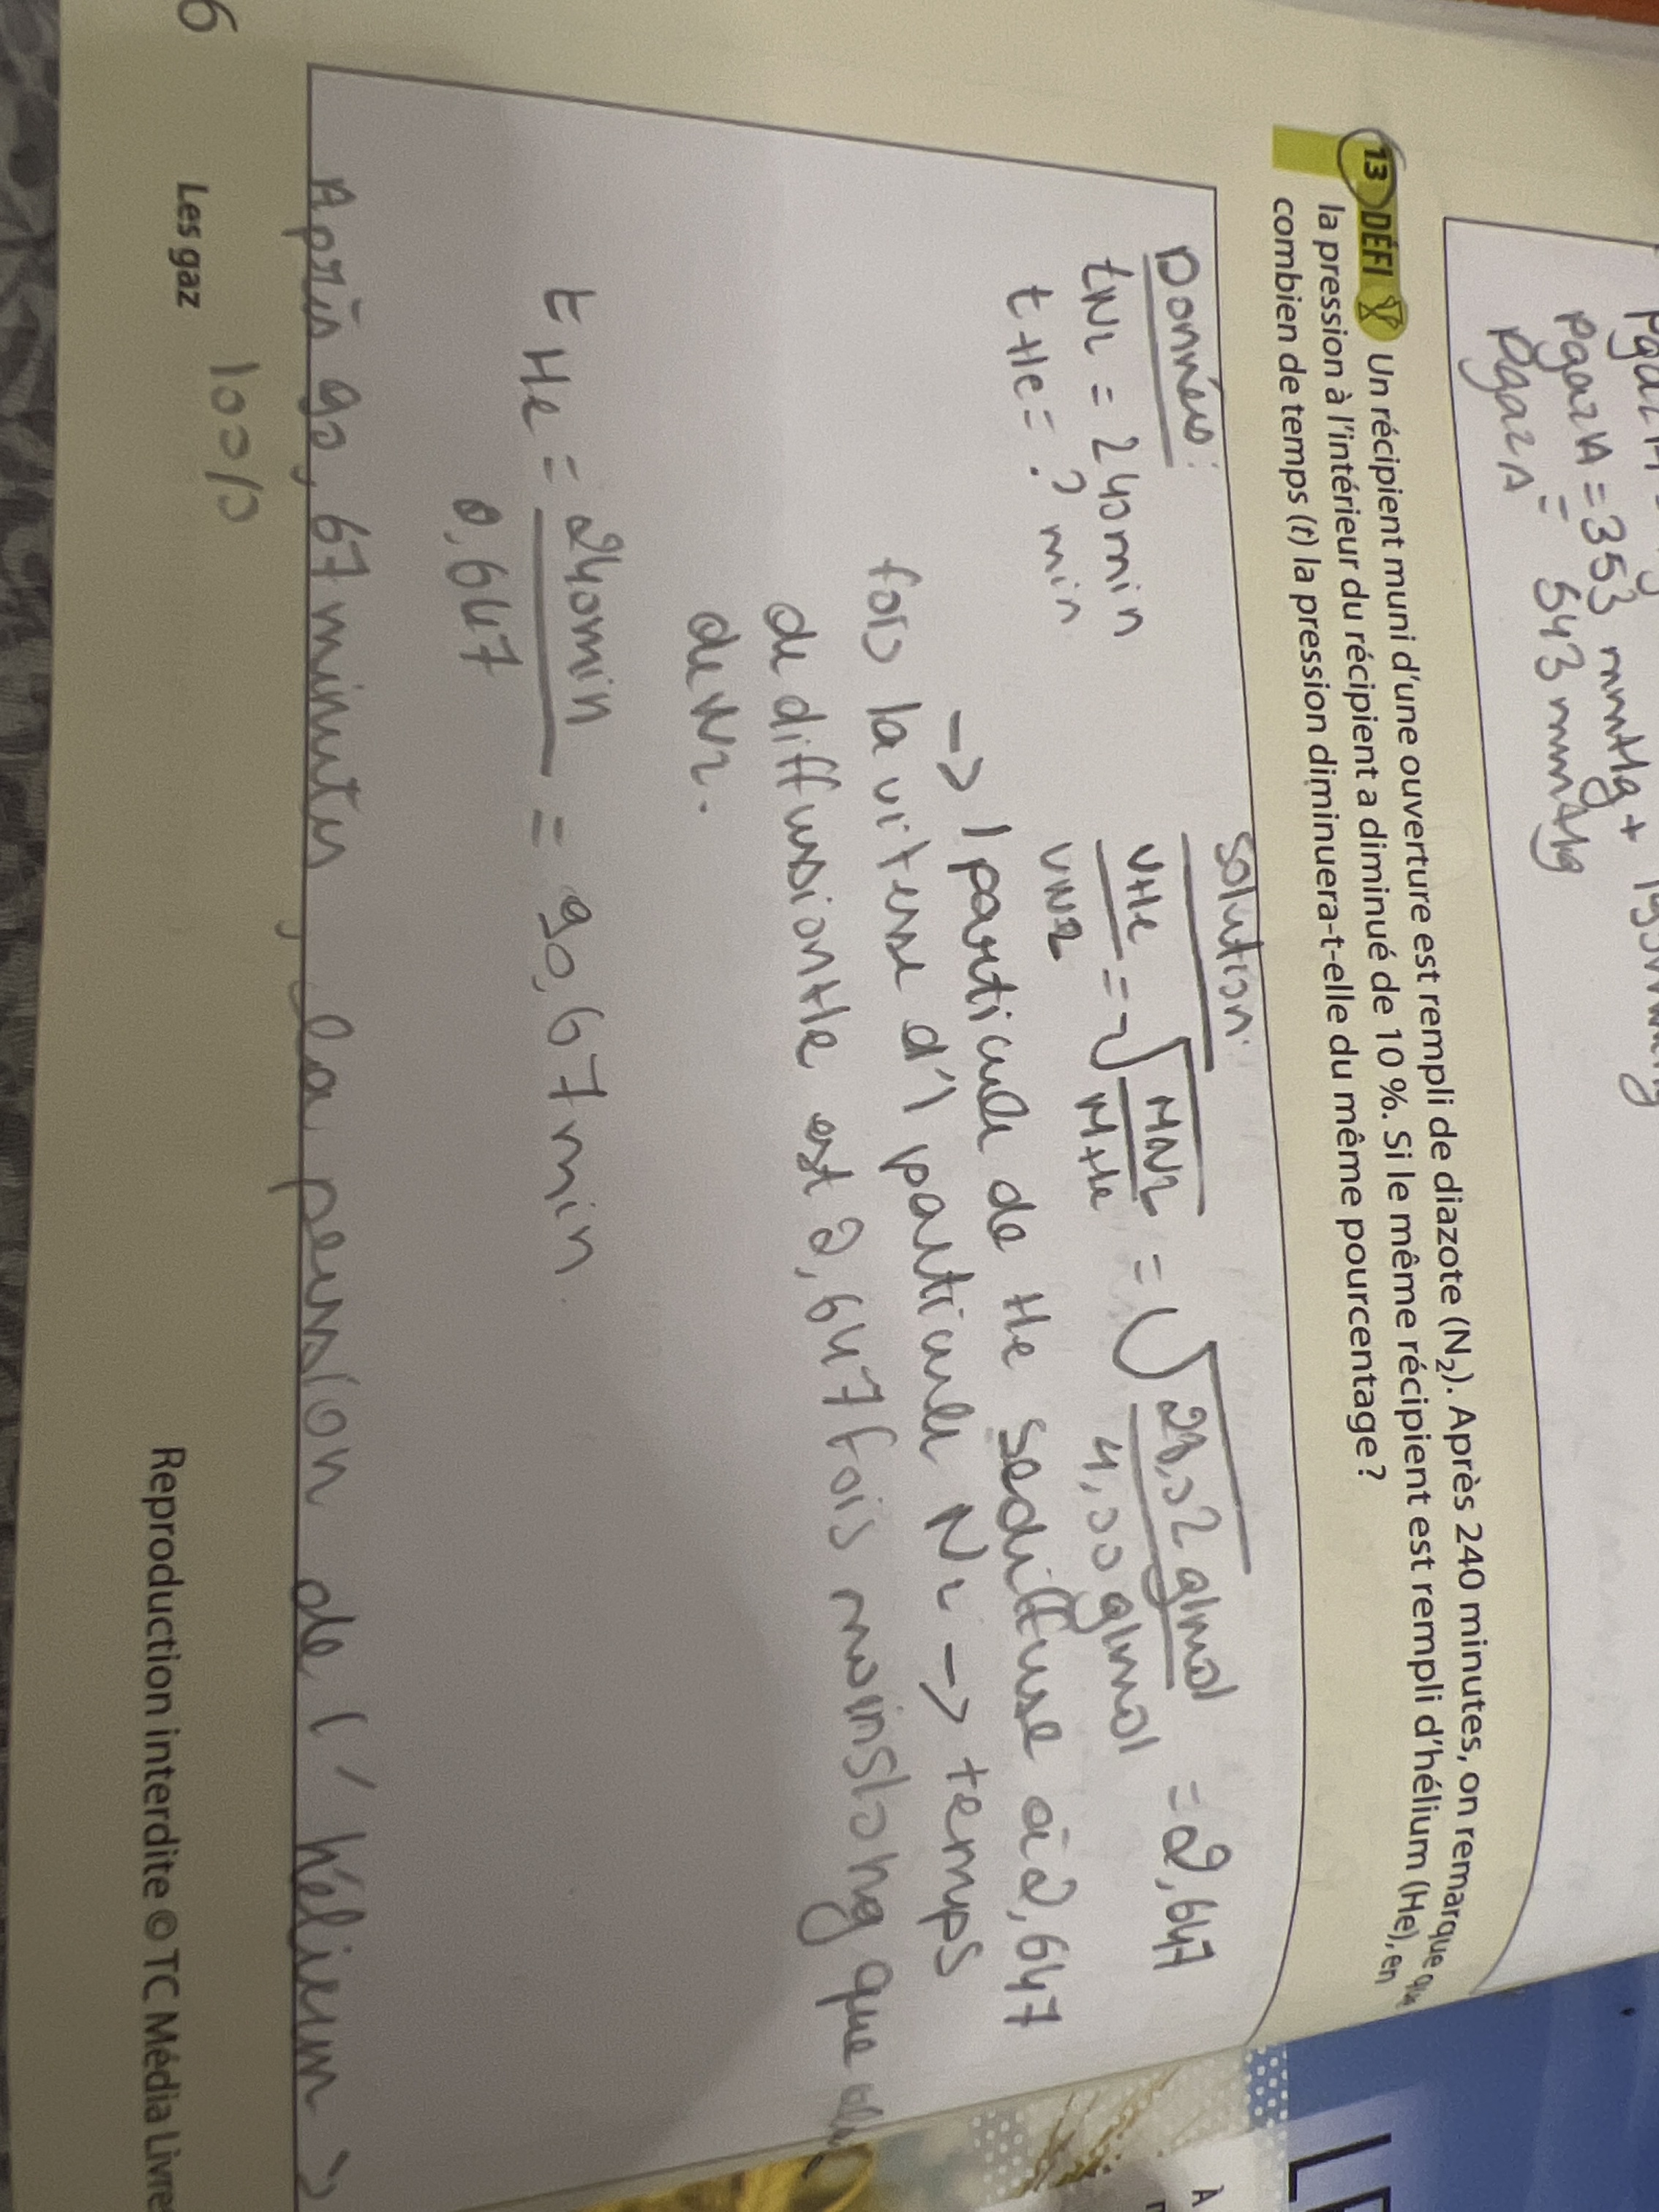 PgazA = 353 mmHg +
PgazA = 543 mmHg
13 DÉFI Un récipient muni d'une ouverture est rempli de diazote (N₂). Après 240 minutes, on remarque que
la pression à l'intérieur du récipient a diminué de 10 %. Si le même récipient est rempli d'hélium (He), en
combien de temps (t) la pression diminuera-t-elle du même pourcentage ?
Données:
tN2 = 240min
tHe = ? min
Solution:
vHe/vN2 = √MN2/MHe = √28,02 g/mol/4,00 g/mol = 2,647
-> 1 particule de He se diffuse à 2,647
fois la vitesse d'1 particule N2 -> temps
de diffusion He est 2,647 fois moins long que
de N2.
tHe = 240min/2,647 = 90,67 min
Après 90,67 minutes la pression de l'hélium >
10%
6 Les gaz Reproduction interdite © TC Média Livres